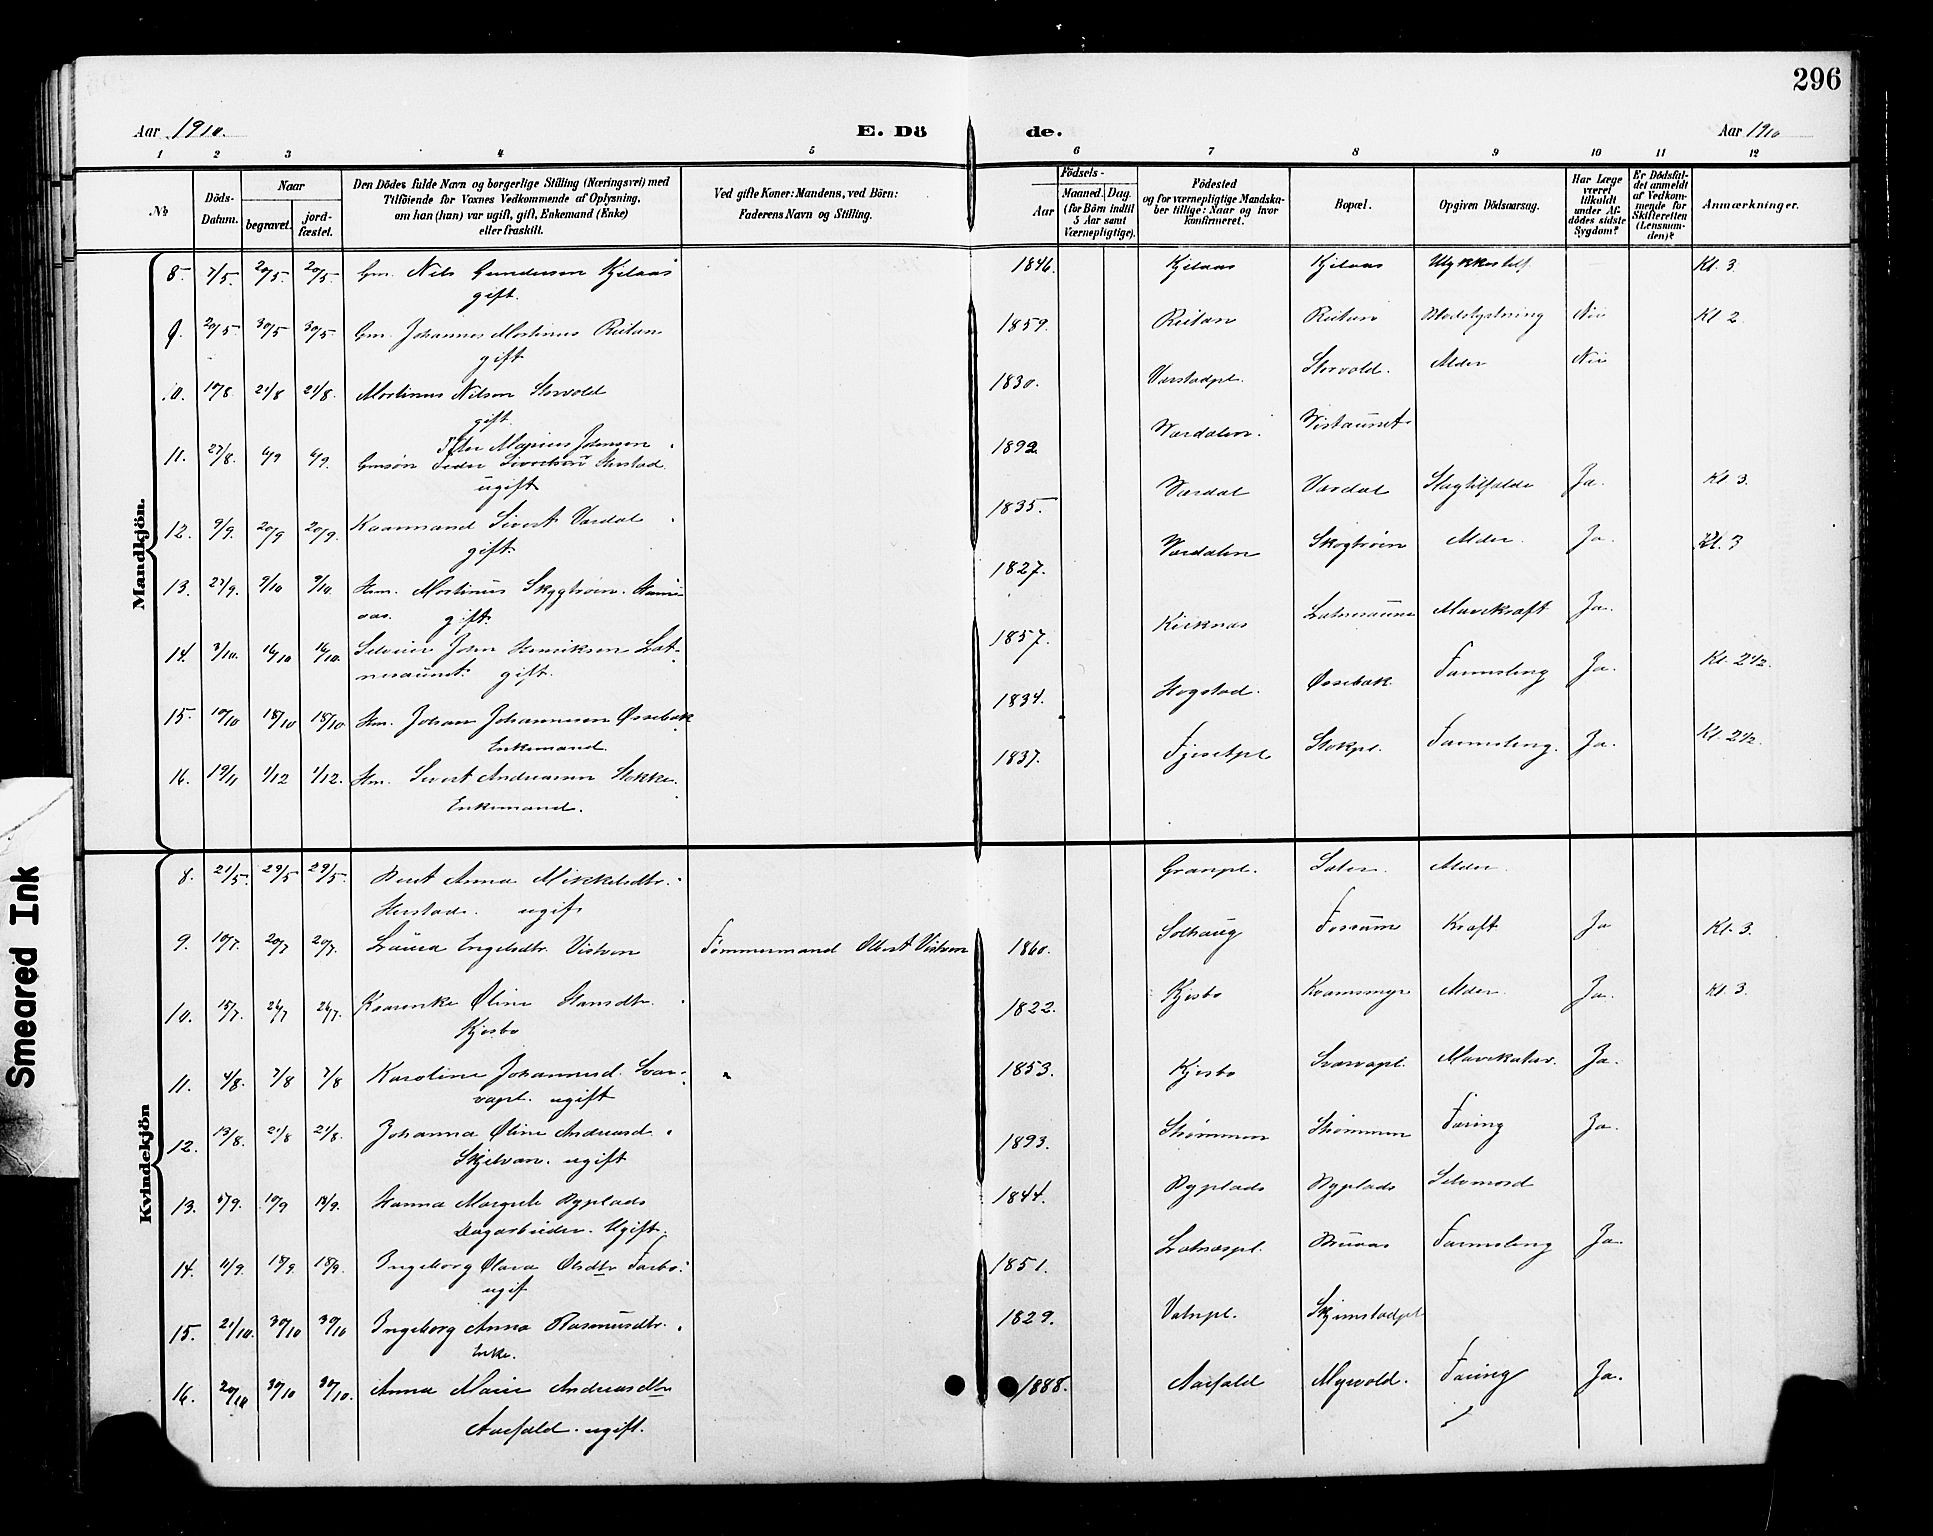 296
Aar 1910.
E. Dö
de.
Aar 1910
1 2 3 4 5 6 7 8 9 10 11 12
№
Döds-
Datum.
Naar
begravet.
jord-
fæstet.
Den Dödes fulde Navn og borgerlige Stilling (Næringsvei) med
Tilföiende for Voxnes Vedkommende af Oplysning,
om han (hun) var ugift, gift, Enkemand (Enke)
eller fraskilt.
Ved gifte Koner: Mandens, ved Börn:
Faderens Navn og Stilling.
Födsels-
Aar
Maaned. Dag.
(for Börn indtil
5 Aar samt
Værnepligtige).
Födested
og for værnepligtige Mandska-
ber tillige: Naar og hvor
konfirmeret.
Bopæl.
Opgiven Dödsaarsag.
Har Læge
været
tilkaldt
under Af-
dödes sidste
Sygdom?
Er Dödsfal-
det anmeldt
af Vedkom-
mende for
Skifteretten
(Lensman-
den)?
Anmærkninger.
Mandkjön.
8. 7/5. 20/5 20/5. Gm. Nils Gundersen Kjelaas 1846. Kjelaas Kjelaas Ulykkestilf. Kl. 3.
gift.
9. 20/5 30/5 30/5 Gm. Johannes Martinus Reitan 1859. Reitan Reitan Blodstyrtning Nei Kl 2
gift
10. 10/8 21/8 21/8. Martinus Nilsen Storvold 1830. Storvold. Alder Nei
gift.
Peter Marius Johnsen
11. 27/8. 6/9 6/9. Gmsøn Peder Sivertsen Herstad 1892 Værdalen.
ugift
12. 9/9. 20/9 20/9. Kaarmand Sivert Vardal 1835. Værdal Vardal Slagtilfælde Ja. Kl 3.
gift.
13. 27/9. 9/10 9/10. Hm. Martinus 1827. Værdalen Alder. Ja. Kl. 3
aas. gift.
14. 3/10. 16/10 16/10. Selveier John Henriksen Lat- 1857. Kirknæs Mavekræft Ja.
nesaunet. gift.
15. 10/10 18/10 18/10. Hm. Johan Johannesen Øssebak 1834. Hegstad. Øssebak Tæring Ja. Kl. 2½.
Enkemand.
16. 19/11 1/12 1/12. Hm. Sivert Andreassen Stokke. 1837. Stokpl. Ja. Kl. 2½.
Enkemand.
Kvindekjön
8. 21/5. 29/5 29/5. Berit Anna Mikkelsdtr. Granpl. Alder.
Herstad. ugift
9. 10/7. 20/7 20/7. Laura Engelsdtr. Vistven Tømmermand Albert Vistven 1860. Solhaug Fossum Kræft Ja Kl. 3.
10. 15/7. 26/7 26/7. Kaarenke Oline Hansdtr. 1822. Kjesbo Kvamsmyr Alder. Ja. Kl. 3.
Kjesbo
11. 4/8. 7/8 7/8 Karoline Johannesd. Svar- 1853. Kjesbo Svarvapl. Mavekatar. Ja.
vapl. ugift
12. 13/8. 21/8 21/8. Johanna Oline Andreasd. 1893. Strømmen Strømmen Tæring Ja.
Skjelvan. ugift
13. 5/9. 10/9 18/9. Hanna Margrete Bygplads 1844. Bygplads Bygplads Selvmord
Dagarbeider. Ugift.
14. 11/9. 18/9 18/9. Ingeborg Olava Olsdtr Farbo. 1851. Latnæspl. Bruvas Ja.
ugift
15. 21/10. 30/10 30/10 Ingeborg Anna Rasmusdtr. 1829. Vatnpl.
Enke.
16. 20/10 30/10 30/10. Anna Marie Andreasdtr 1888. Aarfald Myrvold. Tæring Ja.
Aarfald. ugift.
Smeared Ink